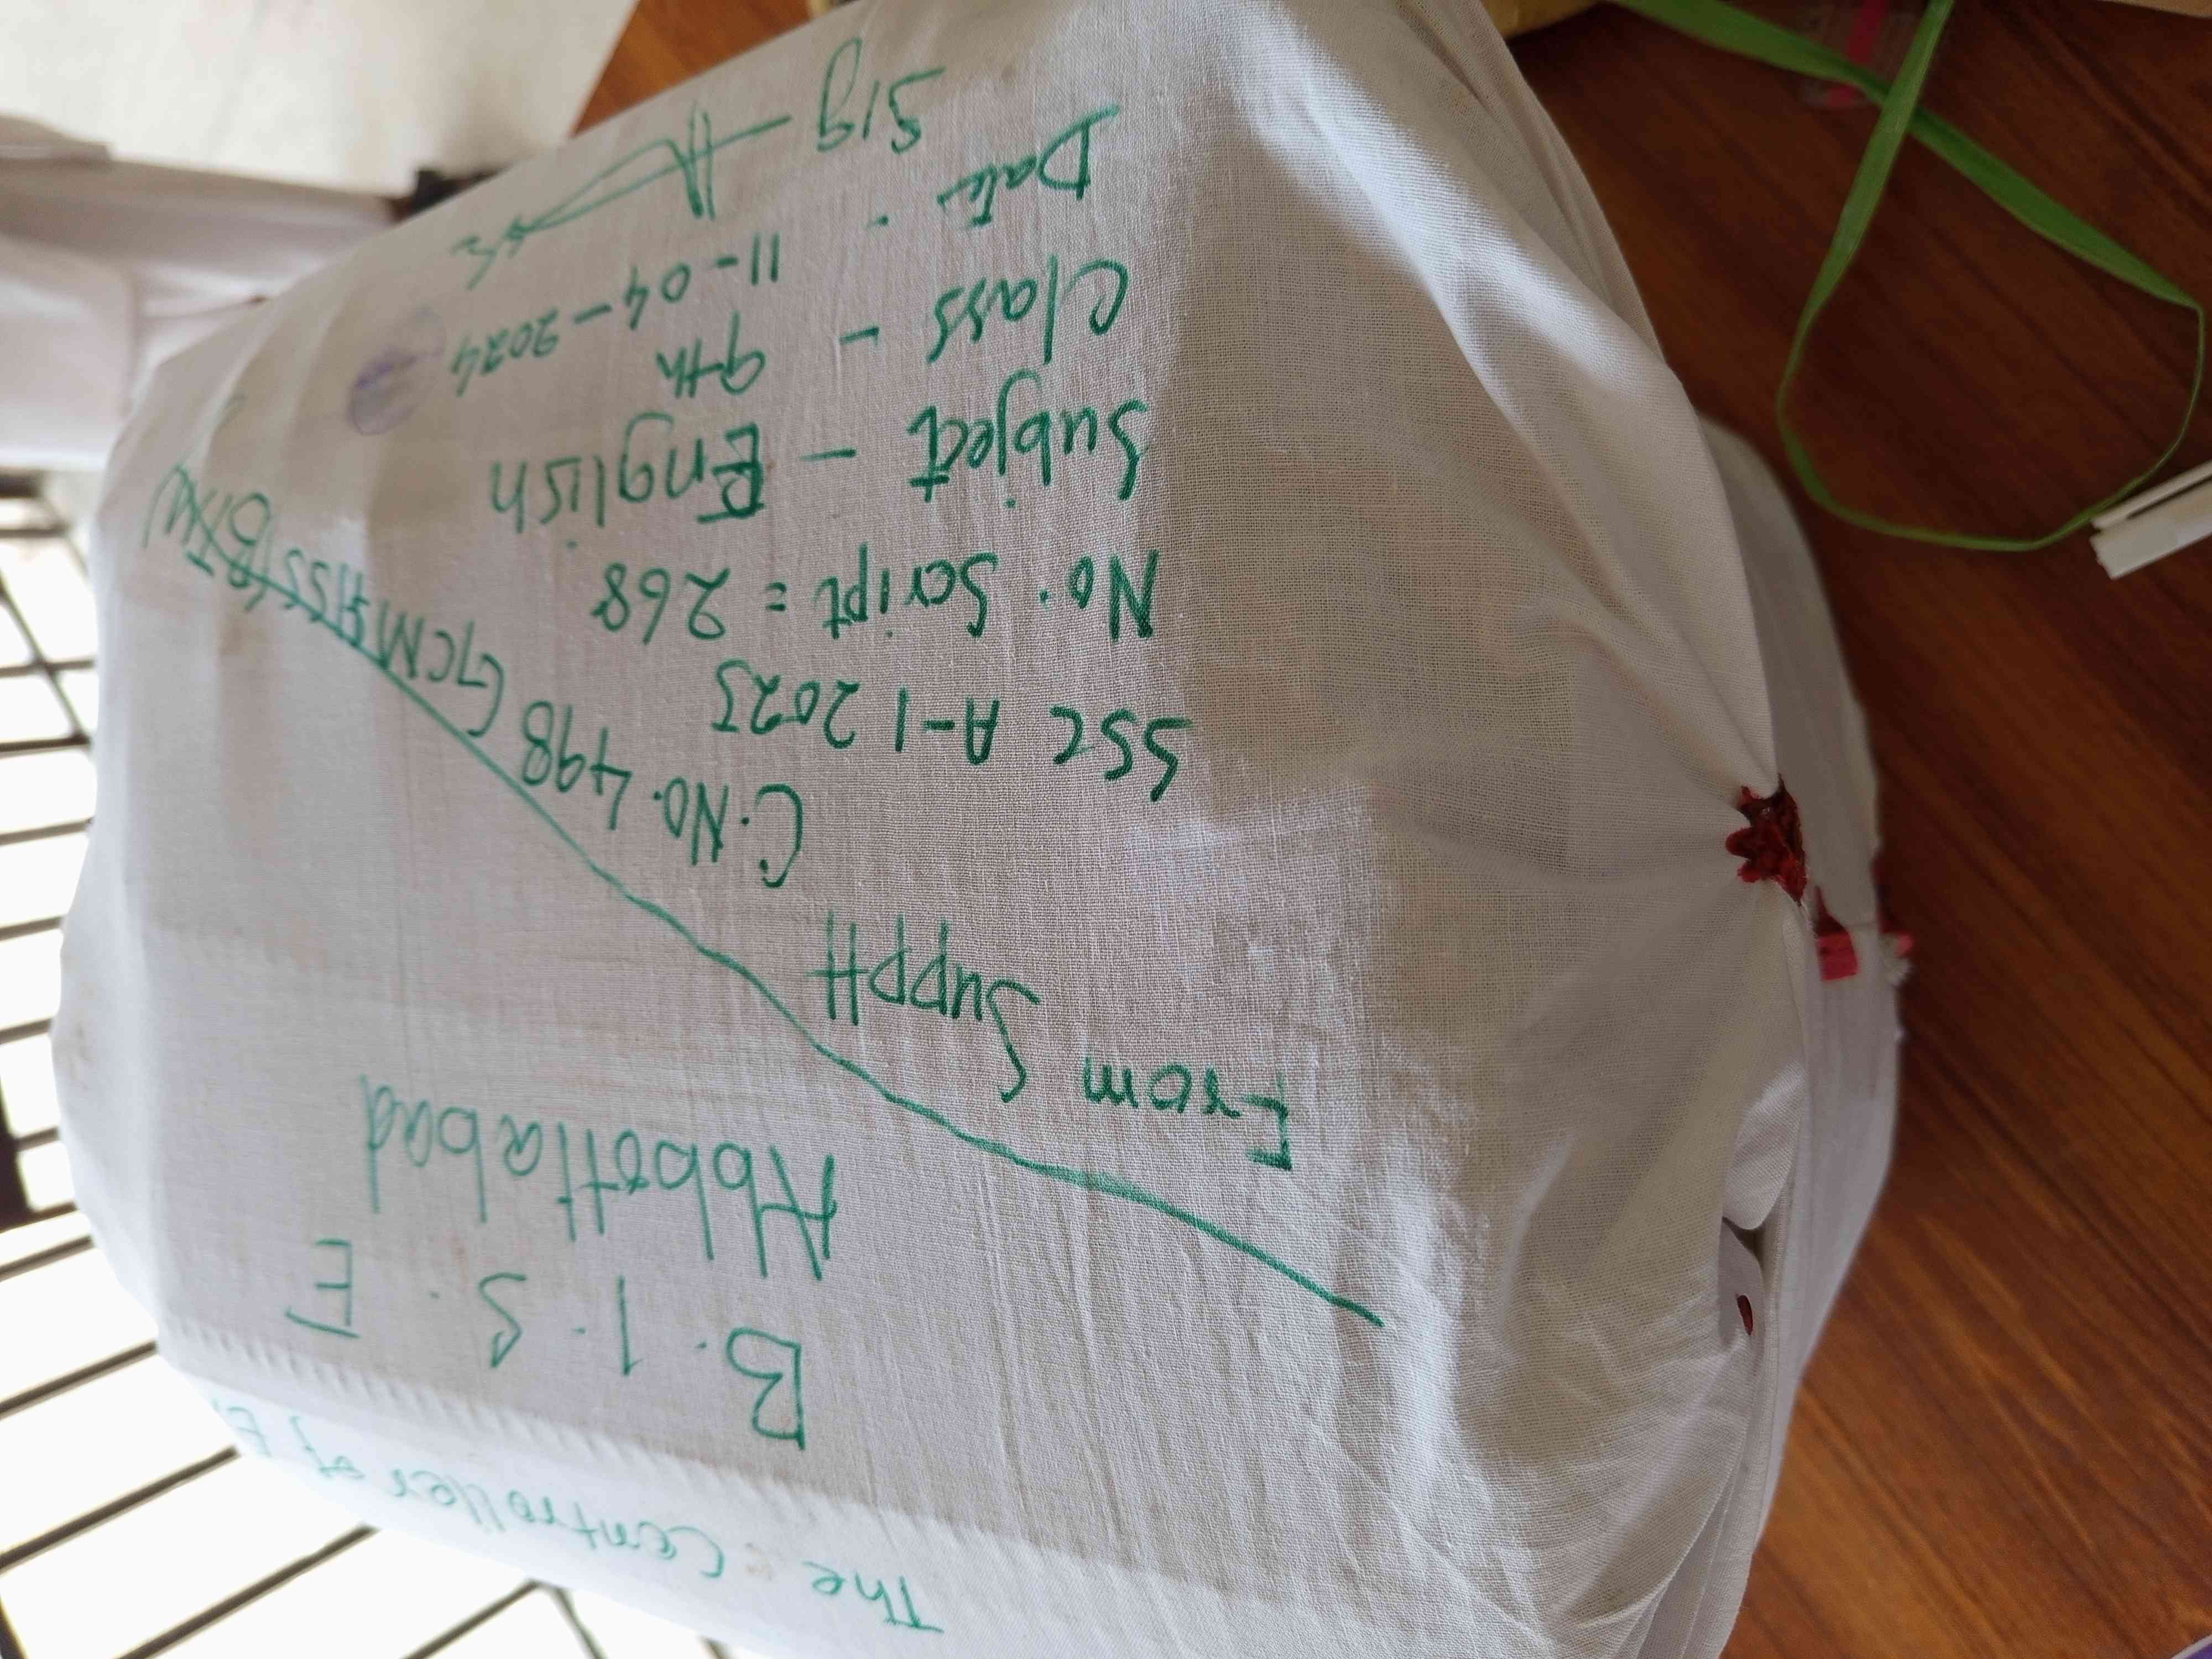 The Controller of E
B.I.S.E
Abbottabad
From Suppt
C.No. 498 GCMHSS (BTW)
SSC A-1 2025
No. Script = 268
Subject - English
Class - 9th
Date: 11-04-2024
Sig